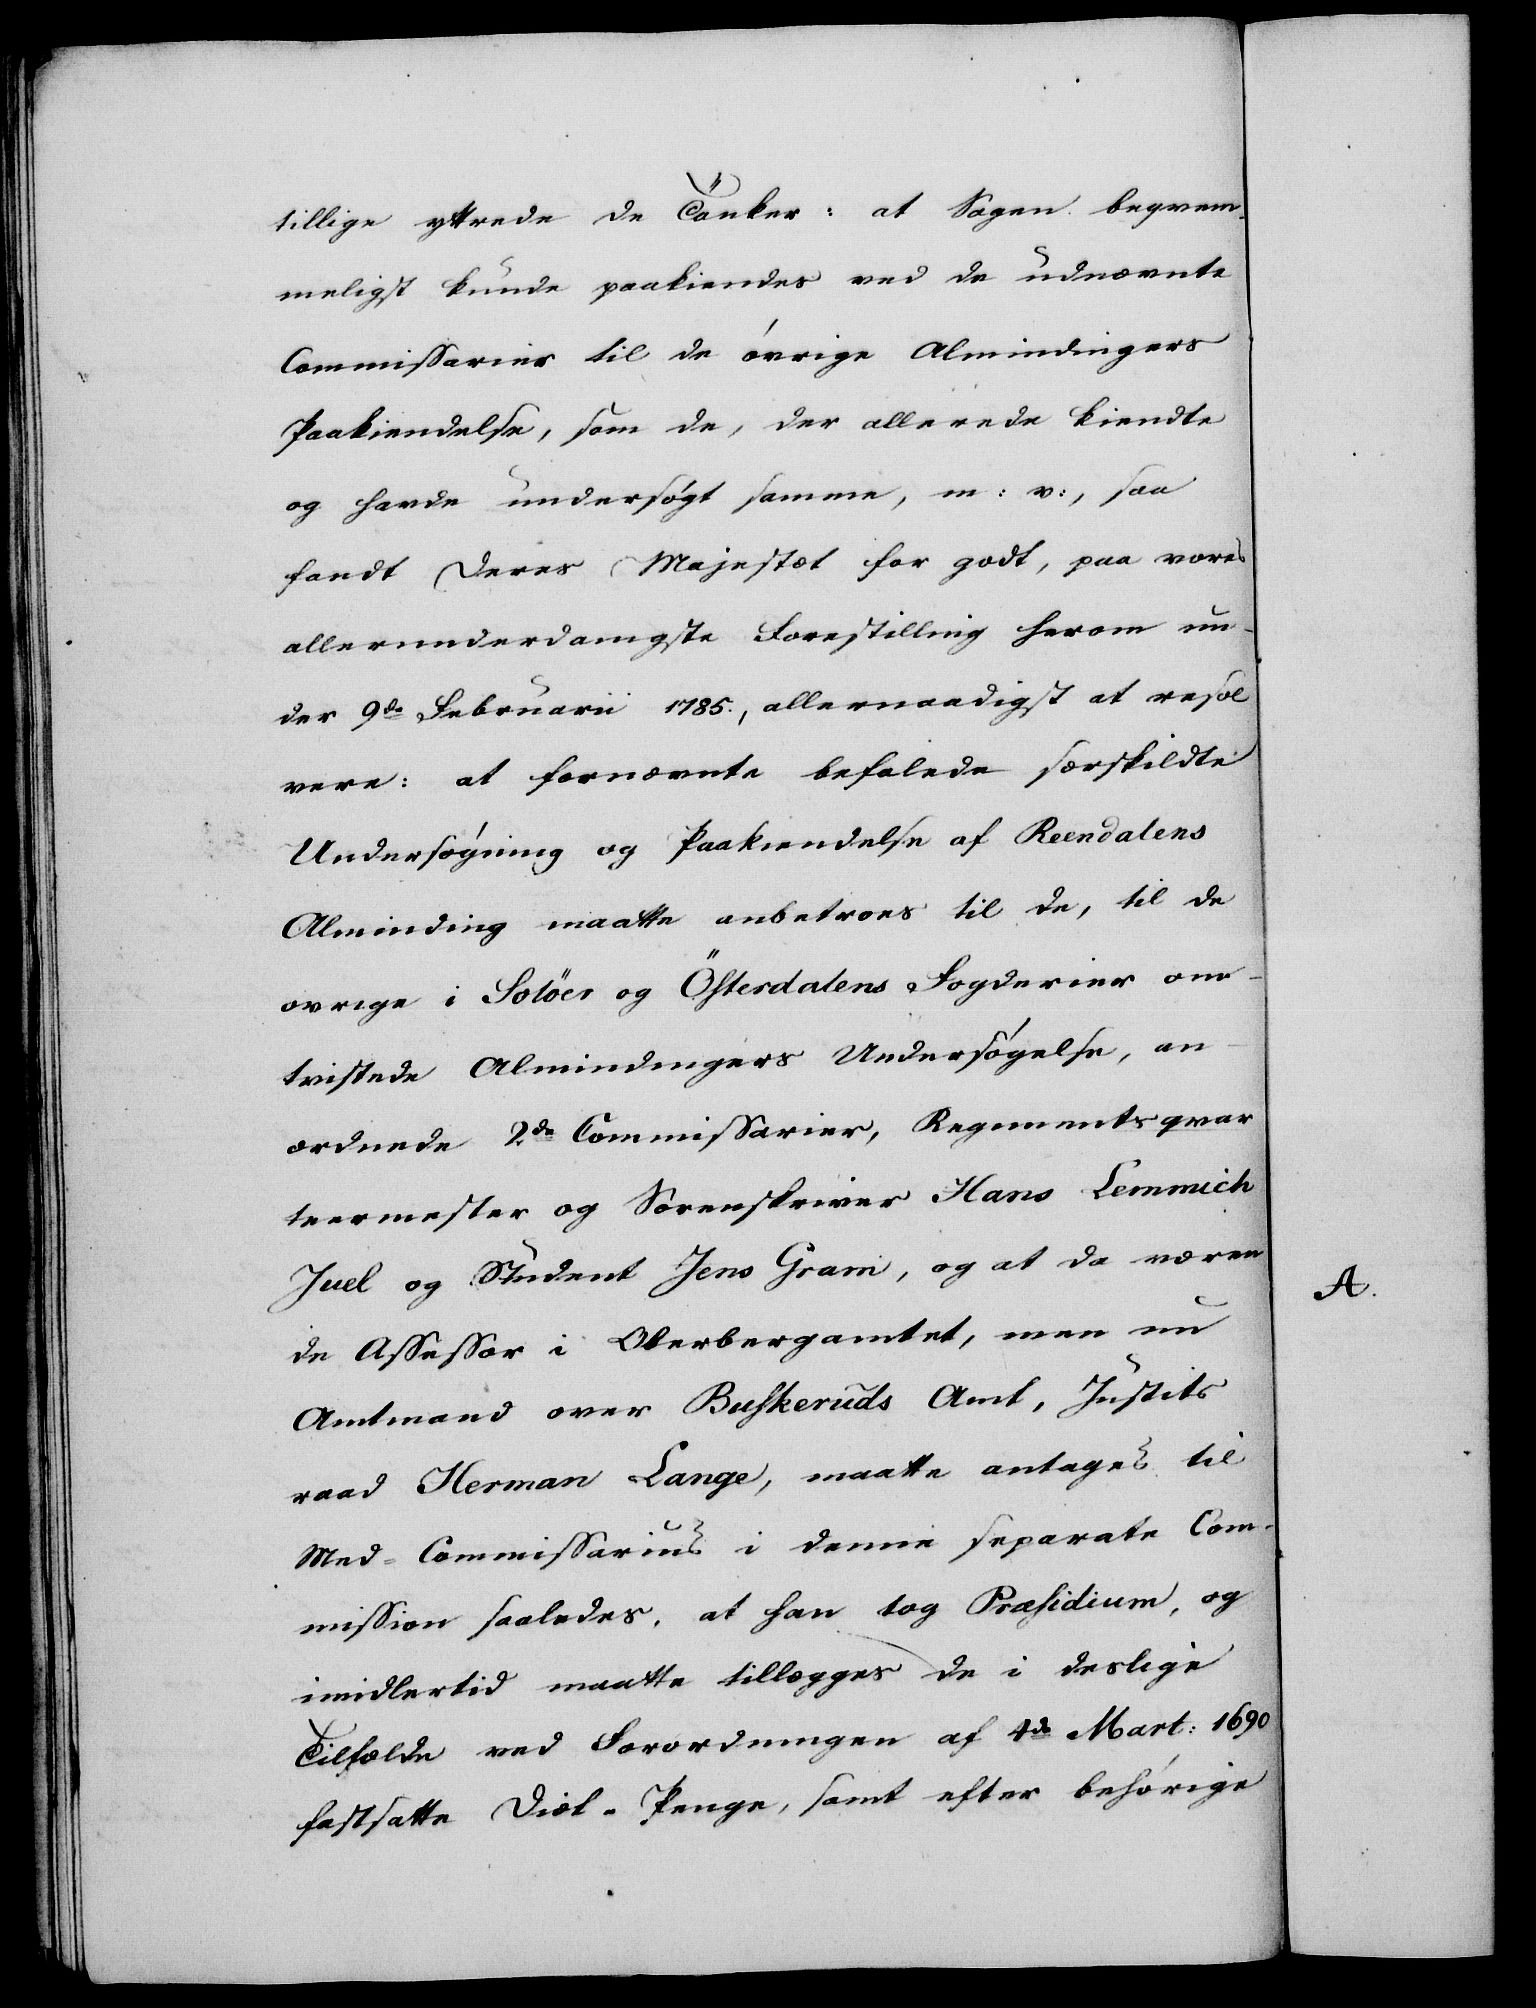 tillige yttrede de Tanker: at Sagen beqvem-
meligst kunde paakiendes ved de udnævnte
Commissarier til de øvrige Almindingers
Paakiendelse, som de, der allerede kiendte
og havde undersøgt samme, m: v:, saa
fandt Deres Majestæt for godt, paa vores
allerunderdanigste Forestilling herom un-
der 9de Februarii 1785., allernaadigst at resol
vere: at fornævnte befalede særskildte
Undersøgning og Paakiendelse af Reendalens
Alminding maatte anbetroes til de, til de
øvrige i Soløer og Österdalens Fogderier om-
tvistede Almindingers Undersøgelse, an-
ordnede 2de Commissarier, Regimentsqvar
teermester og Sorenskriver Hans Lemmich
Juel og Student Jens Gram, og at da væren
de Assessor i Oberbergamtet, men nu
Amtmand over Buskeruds Amt, Justits
raad Herman Lange, maatte antages til
Med-Commissarius i denne separate Com-
mission saaledes, at han tog Præsidium, og
imidlertid maatte tillægges de i deslige
Tilfælde ved Forordningen af 4de Mart: 1690
fastsatte Diæt-Penge, samt efter behørige
A.